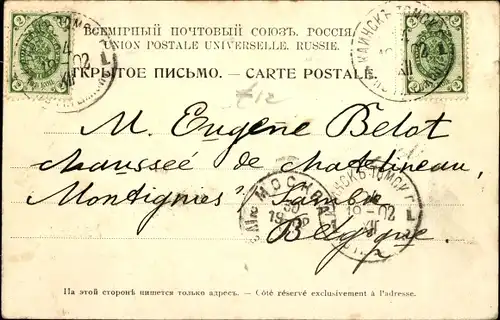 ВСЕМІРНЫЙ ПОЧТОВЫЙ СОЮЗЪ. РОССІЯ
UNION POSTALE UNIVERSELLE. RUSSIE.
ОТКРЫТОЕ ПИСЬМО. — CARTE POSTALE.
M. Eugène Belot
Chaussée de Chatelineau,
Montignies s/ Sambre
Belgique.
МОСКВА
КАИНСКЪ ТОМСК
19-02
На этой сторонѣ пишется только адресъ. — Côté réservé exclusivement à l'adresse.